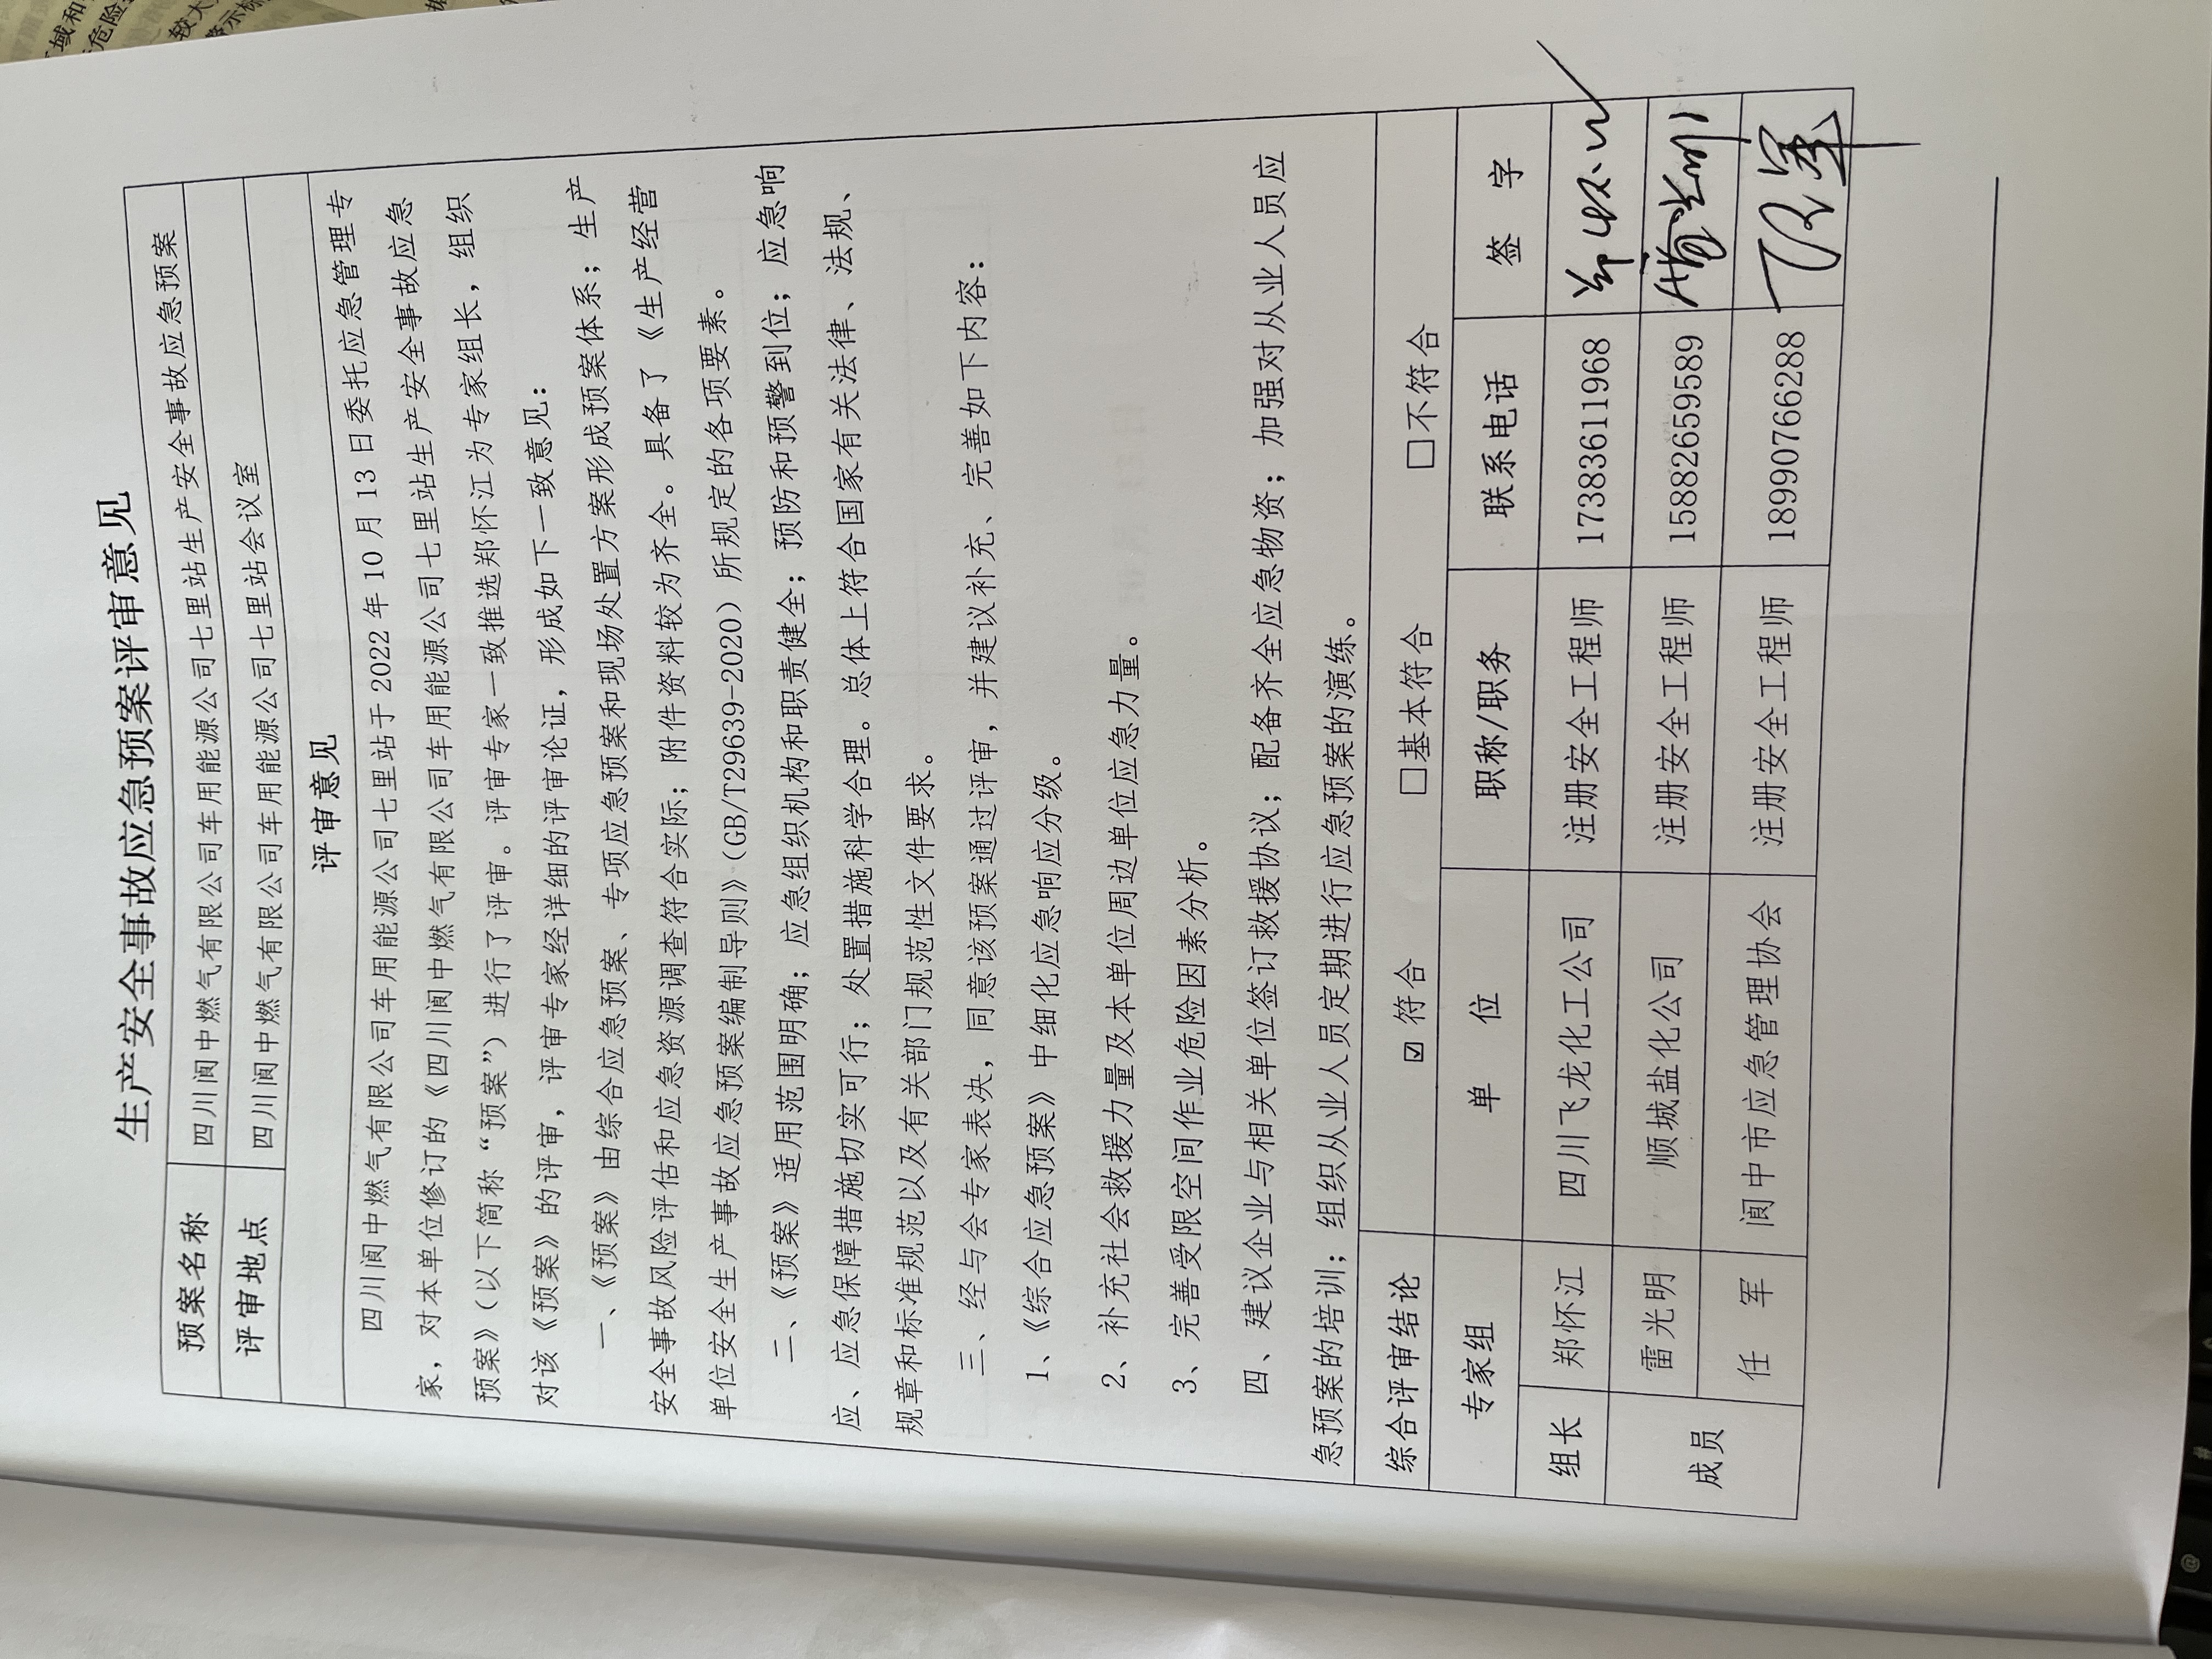 生产安全事故应急预案评审意见
预案名称 四川阆中燃气有限公司车用能源公司七里站生产安全事故应急预案
评审地点 四川阆中燃气有限公司车用能源公司七里站会议室
评审意见
四川阆中燃气有限公司车用能源公司七里站于 2022 年 10 月 13 日委托应急管理专
家，对本单位修订的《四川阆中燃气有限公司车用能源公司七里站生产安全事故应急
预案》（以下简称“预案”）进行了评审。评审专家一致推选郑怀江为专家组长，组织
对该《预案》的评审，评审专家经详细的评审论证，形成如下一致意见：
一、《预案》由综合应急预案、专项应急预案和现场处置方案形成预案体系；生产
安全事故风险评估和应急资源调查符合实际；附件资料较为齐全。具备了《生产经营
单位安全生产事故应急预案编制导则》（GB/T29639-2020）所规定的各项要素。
二、《预案》适用范围明确；应急组织机构和职责健全；预防和预警到位；应急响
应、应急保障措施切实可行；处置措施科学合理。总体上符合国家有关法律、法规、
规章和标准规范以及有关部门规范性文件要求。
三、经与会专家表决，同意该预案通过评审，并建议补充、完善如下内容：
1、《综合应急预案》中细化应急响应分级。
2、补充社会救援力量及本单位周边单位应急力量。
3、完善受限空间作业危险因素分析。
四、建议企业与相关单位签订救援协议；配备齐全应急物资；加强对从业人员应
急预案的培训；组织从业人员定期进行应急预案的演练。
综合评审结论 ☑符合 □基本符合 □不符合
专家组 单 位 职称/职务 联系电话 签 字
组长 郑怀江 四川飞龙化工公司 注册安全工程师 17383611968
成员 雷光明 顺城盐化公司 注册安全工程师 15882659589
任 军 阆中市应急管理协会 注册安全工程师 18990766288 任军